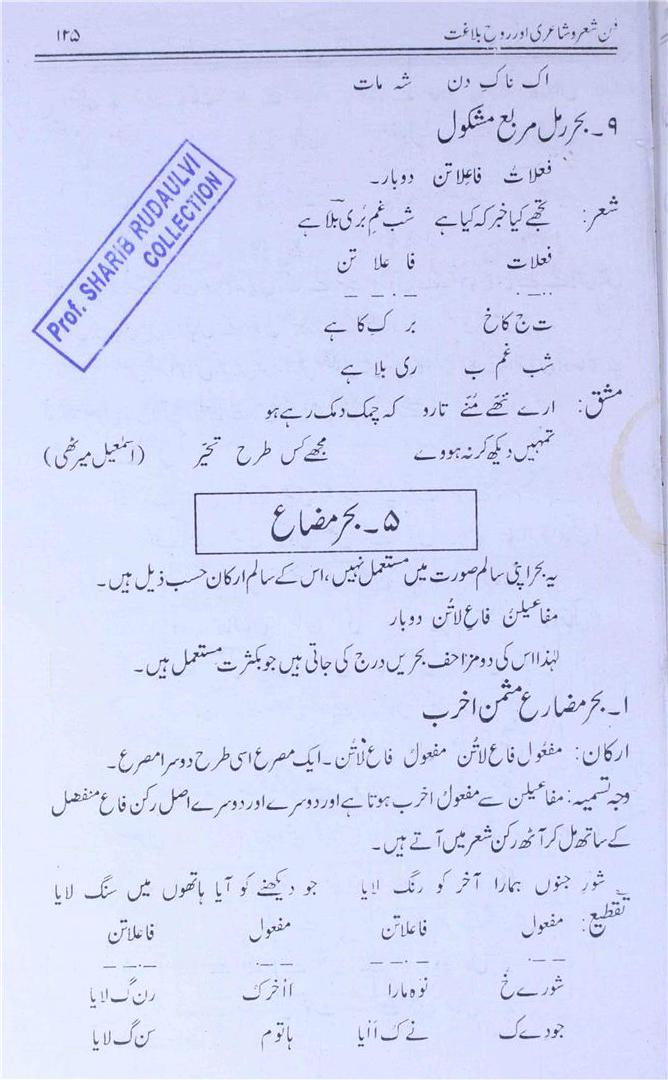 فن شعر و شاعری اور روح بلاغت ۱۲۵
اک ناک دن شہ مات
۹۔ بحر رمل مربع مشکول
فعلاتُ فاعلاتن دوبار۔
شعر: تجھے کیا خبر کہ کیا ہے شب غم بُری بلا ہے
فعلات فا علا تن
ت ج کا خ بر ک کا ہے
شب غم ب ری بلا ہے
مشق: ارے ننّھے مُنّے تارو کہ چمک دمک رہے ہو
تمہیں دیکھ کر نہ ہووے مجھے کس طرح تحیّر (اسمٰعیل میرٹھی)
Prof. SHARIB RUDAULVI
COLLECTION
۵۔ بحر مضاع
یہ بحر اپنی سالم صورت میں مستعمل نہیں، اس کے سالم ارکان حسب ذیل ہیں۔
مفاعیلنُ فاعِ لاتُن دوبار
لہٰذا اس کی دو مزاحف بحریں درج کی جاتی ہیں جو بکثرت مستعمل ہیں۔
۱۔ بحر مضارع مثمن اخرب
ارکان: مفعُول فاع لاتُن مفعول فاع لاتُن۔ ایک مصرع اسی طرح دوسرا مصرع۔
وجہ تسمیہ: مفاعیلن سے مفعولُ اخرب ہوتا ہے اور دوسرے اور دوسرے اصل رکن فاع منفصل
کے ساتھ مل کر آٹھ رکن شعر میں آتے ہیں۔
شورِ جنوں ہمارا آخر کو رنگ لایا جو دیکھنے کو آیا ہاتھوں میں سنگ لایا
تقطیع: مفعول فاعلاتن مفعول فاعلاتن
شورے خ نوہ مارا ااخرک رن گ لایا
جو دے ک نے ک اایا ہاتوم سن گ لایا